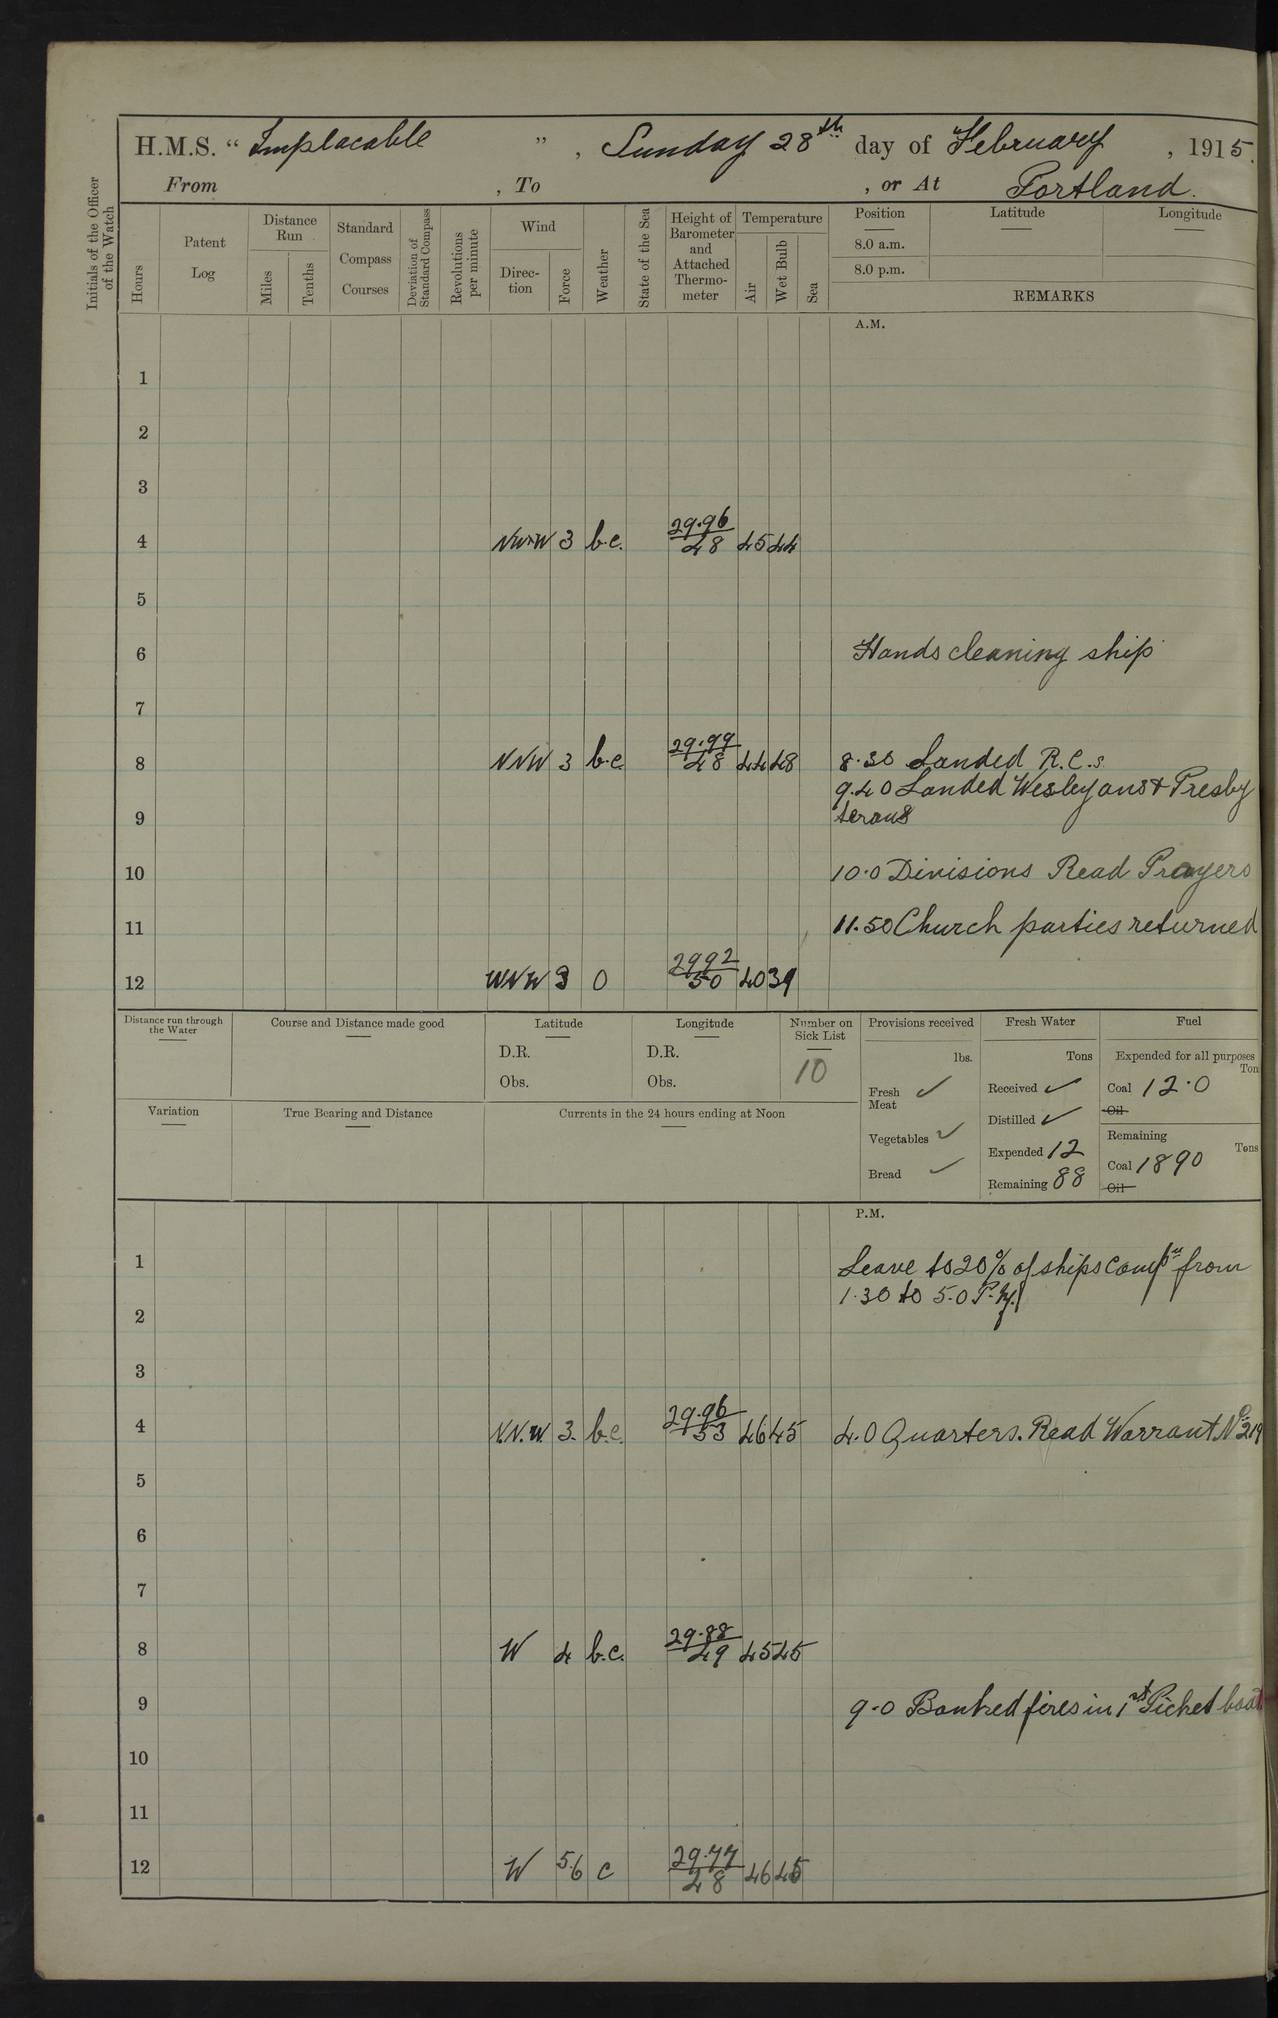 H.M.S. “ Implacable ”, Sunday 28th day of February, 1915.
From , To , or At Portland.
Initials of the Officer of the Watch
Hours
Patent Log
Distance Run
Miles
Tenths
Standard Compass Courses
Deviation of Standard Compass
Revolutions per minute
Wind
Direction
Force
Weather
State of the Sea
Height of Barometer and Attached Thermometer
Temperature
Air
Wet Bulb
Sea
Position Latitude Longitude
8.0 a.m.
8.0 p.m.
REMARKS
A.M.
1
2
3
4 3 b.c. 29.96 48 45 44
5
6 Hands cleaning ship
7
8 NNW 3 b.c. 29.99 48 44 48 8.30 Landed R.C.s
9.40 Landed Wesleyans & Presby
9 terans
10 10.0 Divisions Read Prayers
11 11.50 Church parties returned
12 WNW 3 O 2992 50 40 39
Distance run through the Water
Course and Distance made good
Latitude
D.R.
Obs.
Longitude
D.R.
Obs.
Number on Sick List
10
Variation
True Bearing and Distance
Currents in the 24 hours ending at Noon
Provisions received
lbs.
Fresh Meat ✓
Vegetables ✓
Bread ✓
Fresh Water
Tons
Received ✓
Distilled ✓
Expended 12
Remaining 88
Fuel
Expended for all purposes
Ton
Coal 12.0
Oil
Remaining
Tons
Coal 1890
Oil
P.M.
1 Leave to 20% of ships compy from
1.30 to 5.0 P.M.
2
3
4 N.N.W. 3. b.c. 29.96 53 46 45 4.0 Quarters. Read Warrant No 219
5
6
7
8 W 4 b.c. 29.88 49 45 45
9 9.0 Banked fires in 1st Picket boat
10
11
12 W 5.6 c 29.77 48 46 45